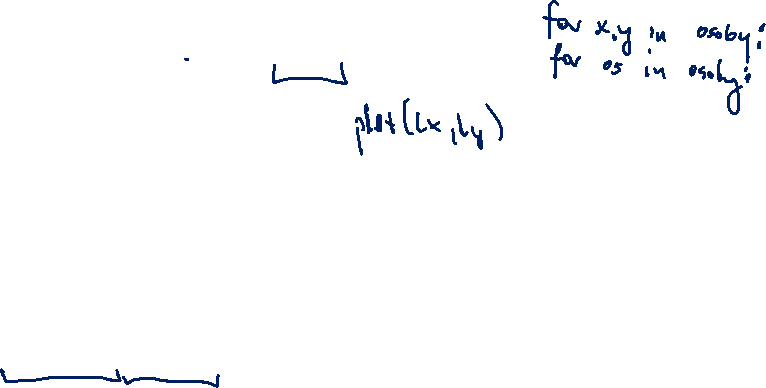 for x,y in osoby:
for os in osoby:
plot(lx,ly)